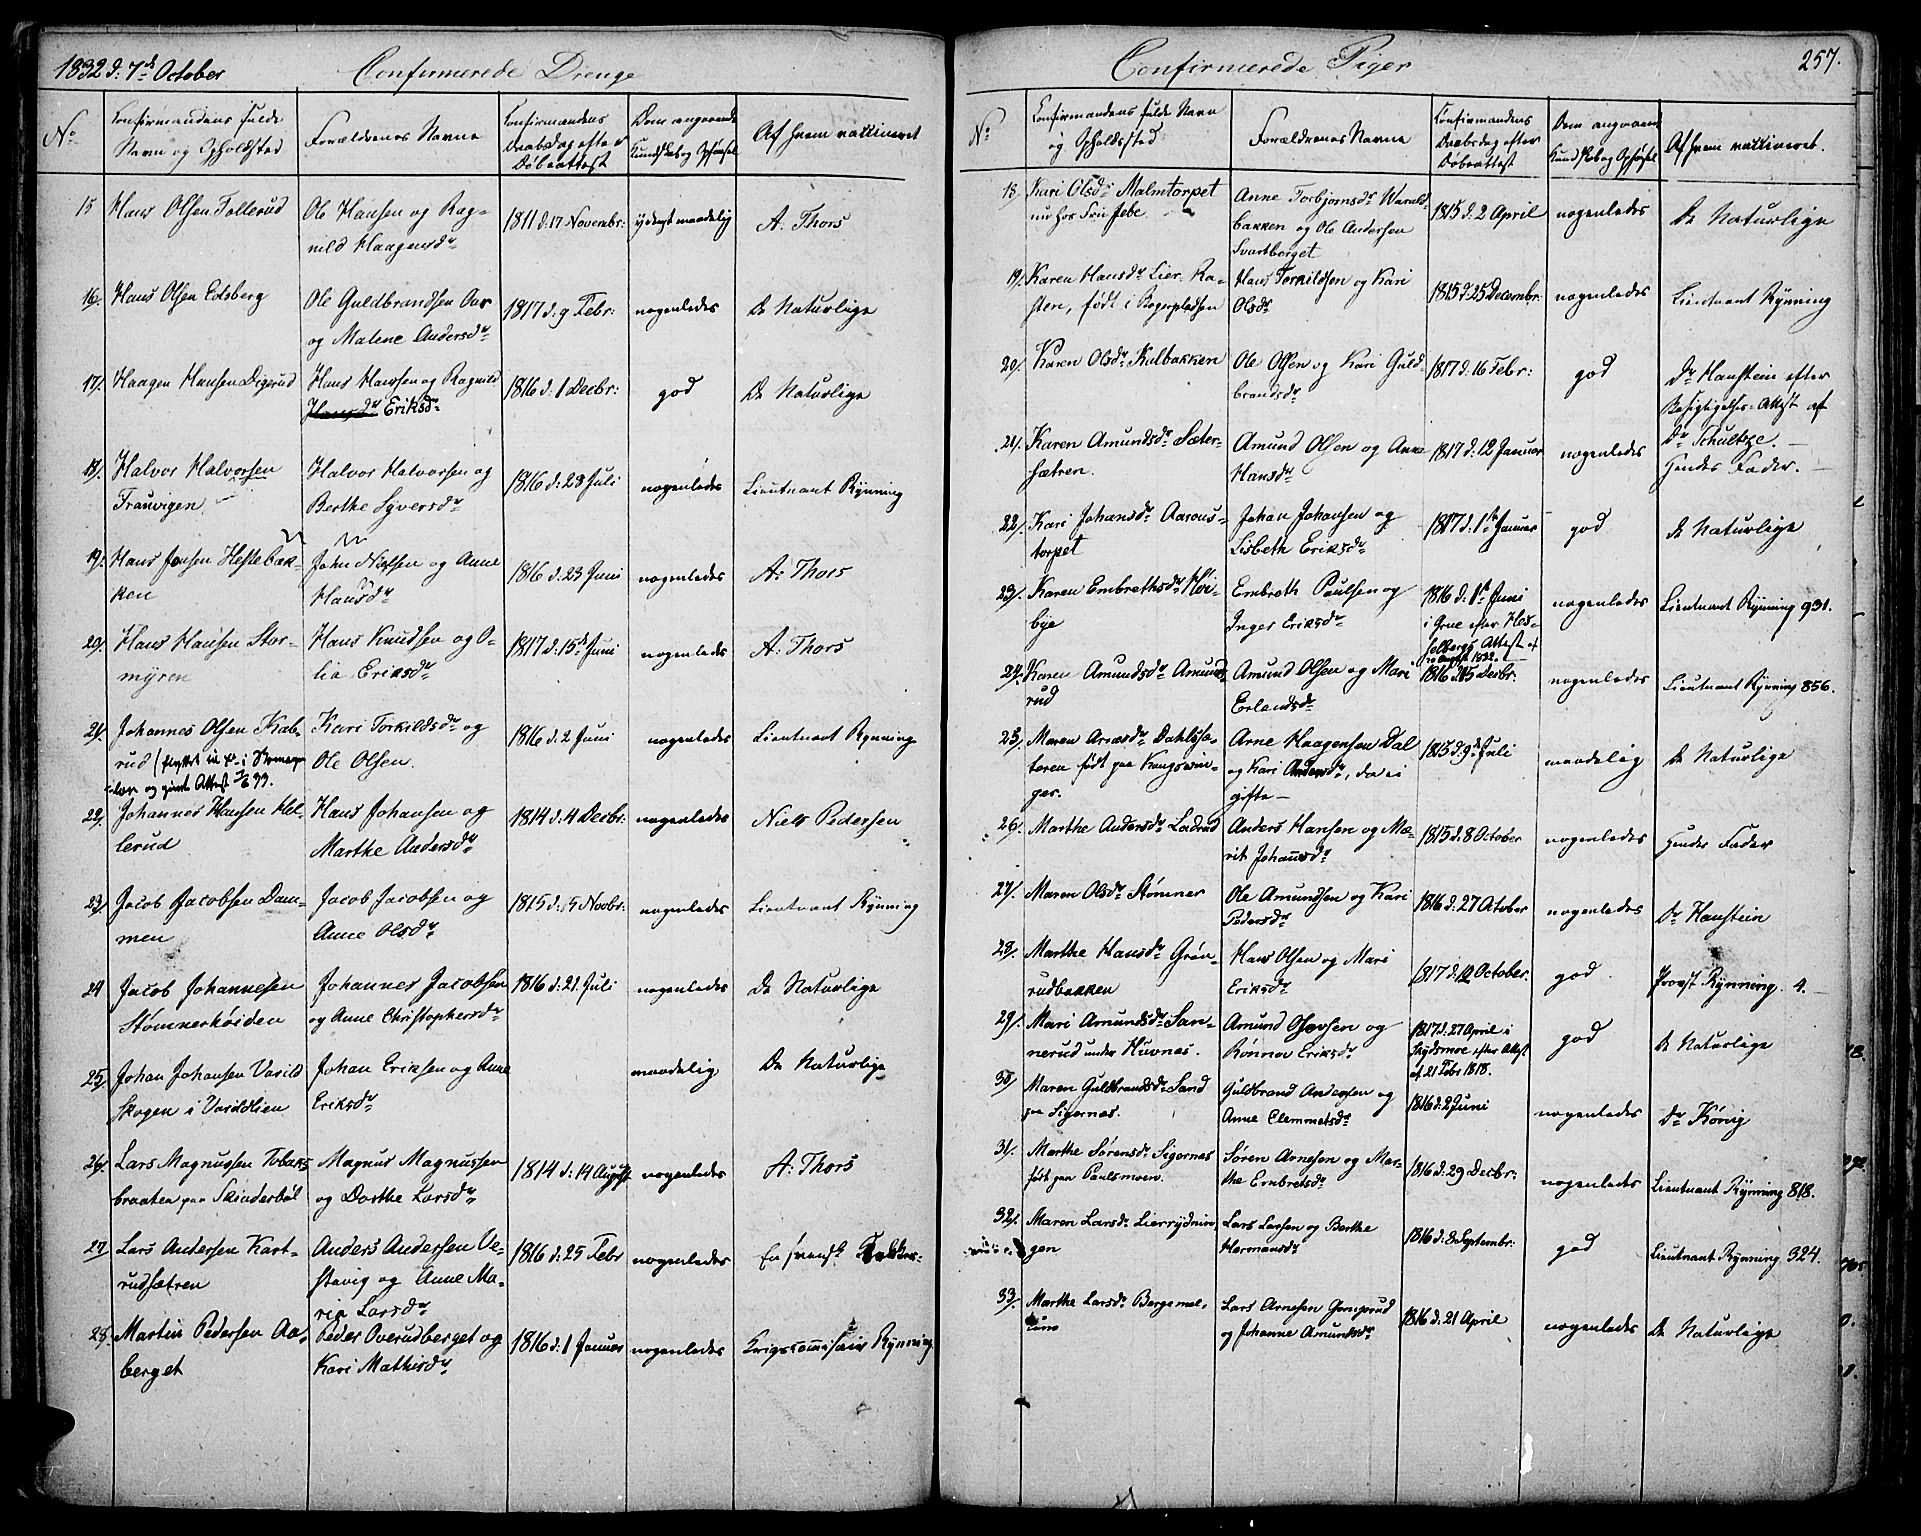 1832 d: 7de October
Confirmerede Drenge
No
Confirmandens fulde
Navn og Opholdsted
Forældrenes Navne
Confirmandens
Daabsdag efter
Døbeattest
Dom angaaende
Kundskab og Opførsel
Af hvem vaccineret
15 Hans Olsen Tollerud
Ole Hansen og Rag-
nild Haagensdr
1811 d: 17 Novembr:
yderst maadelig
A: Thors
16/ Hans Olsen Edsberg
Ole Guldbrandsen Aas
og Malene Andersdr
1817 d: 9 Febr:
nogenledes
De Naturlige
17/ Haagen Hansen Digerud
Hans Hansen og Ragnild
Hansdr Eriksdr
1816 d: 1 Decbr:
god
De Naturlige
18/ Halvor Halvorsen
Tranvigen
Halvor Halvorsen og
Berthe Syversdr
1816 d: 28 Juli
nogenledes
Lieutnant Rynning
19/ Hans Jonsen Hestebak-
ken
John Nilsen og Anne
Hansdr
1816 d: 23 Juni
nogenledes
A: Thors
20/ Hans Hansen Stor-
myren
Hans Knudsen og O-
lia Eriksdr
1817 d: 15de Juni
nogenledes
A: Thors
21/ Johannes Olsen Kab-
rud
og Attest
Kari Torkildsdr og
Ole Olsen.
1816 d: 2 Juni
nogenledes
Lieutnant Rynning
22/ Johannes Hansen Hel-
lerud
Hans Johansen og
Marthe Andersdr
1814 d: 4 Decbr:
nogenledes
Niels Pedersen
23/ Jacob Jacobsen Dam-
men
Jacob Jacobsen og
Anne Olsdr
1815 d: 5 Novbr:
nogenledes
Lieutnant Rynning
24 Jacob Johannesen
Stømnerhøiden
Johannes Jacobsen
og Anne Christophersdr
1816 d: 21 Juli
nogenledes
De Naturlige
25/ Johan Johansen Varild
skogen i Varildlien
Johan Eriksen og Anne
Eriksdr
maadelig
De Naturlige
26/ Lars Magnussen Tobaks
braaten paa Skinderbøl
Magnus Magnussen
og Dorthe Larsdr
1814 d: 14 August
nogenledes
A: Thors
27 Lars Andersen Kart-
rudsætren
Anders Andersen Ve-
stavig og Anne Ma-
ria Larsdr
1816 d: 25 Febr
nogenledes
En svensk
28/ Martin Pedersen Aa-
berget
Peder Overudberget og
Kari Mathisdr
1816 d: 1 Januar
nogenledes
Krigscommisair Rynning
Confirmerede Piger
257.
No
Confirmandens fulde Navn
og Opholdssted
Forældrenes Navne
Confirmandens
Daabsdag efter
Døbeattest
Dom angaaende
Kundskab og Opførsel
Af hvem vaccineret.
18 Kari Olsdr Malmtorpet
nu hos
Anne Torbjørnsdr Warald-
bakken og Ole Andersen
Svartberget
1815 d: 2 April
nogenledes
De Naturlige
19/ Karen Hansdr Lier-Ra-
sten, født i Bogerpladsen
Hans Torkildsen og Kari
Olsdr
1815 d: 25 Decembr:
nogenledes
Lieutnant Rynning
20/ Karen Olsdr Kulbakken
Ole Olsen og Kari Guld-
brandsdr
1817 d: 16 Febr:
god
Dr Hanstein efter
Besigtigelses-Attest af
Dr Schultze.
21/ Karen Amundsdr Sæter-
sætren.
Amund Olsen og Anne
Hansdr
1817 d: 12 Januar
nogenledes
Hendes Fader.
22/ Kari Johansdr Aarous-
torpet
Johan Johansen og
Lisbeth Eriksdr
1817 d: 1ste Januar
god
De Naturlige
23/ Karen Embrethsdr Høi-
bye
Embreth Paulsen og
Inger Eriksdr
1816 d: 1ste Juni
i Grue efter Hes-
selbergs Attest af
August 1832.
nogenledes
Lieutnant Rynning 931.
24/ Karen Amundsdr Amunds-
rud
Amund Olsen og Mari
Erlandsdr
1816 d: 15 Decbr:
nogenledes
Lieutnant Rynning 856.
25/ Maren Arnesdr Dahlssæ-
teren født paa Kongsvin-
ger.
Arne Haagensen Dal
og Kari Andersdr, da ei
gifte
1815 d: 9de Juli
maadelig
De Naturlige
26/ Marthe Andersdr Ladrud
Anders Hansen og Mæ-
rit Johansdr
1815 d: 8 October
nogenledes
Hendes Fader
27/ Maren Olsdr Stømner
Ole Amundsen og Kari
Pedersdr
1816 d: 27 October
nogenledes
Dr Hanstein
28/ Marthe Hansdr Grøn-
rudbakken
Hans Olsen og Mari
Eriksdr
1817 d: 12 October.
god
Provst Rynning. 4.
29/ Mari Amundsdr San-
nerud under Huvnæs.
Amund Olavsen og
Rønnov Eriksdr
1817 d: 27 April i
Skydsmoe efter Attest
af 21 Febr 1818.
god
De Naturlige
30/ Maren Guldbrandsdr Sand
paa Sigernæs.
Guldbrand Andersen og
Anne Clemmetsdr
1816 d: 2 Juni
nogenledes
Dr König
31/ Marthe Sørensdr Sigernæs
født paa Paulsmoen.
Søren Arnesen og Mar-
the Embretsdr
1816 d: 29 Decbr:
nogenledes
Lieutnant Rynning 818.
32/ Maren Larsdr Lierrydnin
gen
Lars Larsen og Berthe
Hermansdr
1816 d: 8 Septembr:
god
Lieutnant Rynning 324.
33/ Marthe Larsdr Bergemel-
lum
Lars Arnesen Gamprud
og Johanne Amundsdr
1816 d: 21 April
nogenledes
De Naturlige